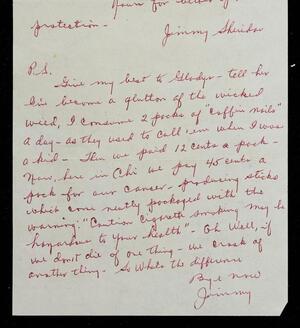 Yours for better
protection -
Jimmy Sheridan
P.S.
Give my best to Gladys - tell her
I've become a glutton of the wicked
weed, I consume 2 packs of "coffin nails"
a day - as they used to call 'em when I was
a kid - Then we paid 12 cents a pack -
Now, here in Chi we pay 45 cents a
pack for our cancer - producing sticks
which come neatly packaged with the
warning: "Caution Cigarette smoking may be
hazardous to your health" - Oh Well, if
we don't die of one thing - we croak of
another thing - So Whats the difference
Bye now
Jimmy